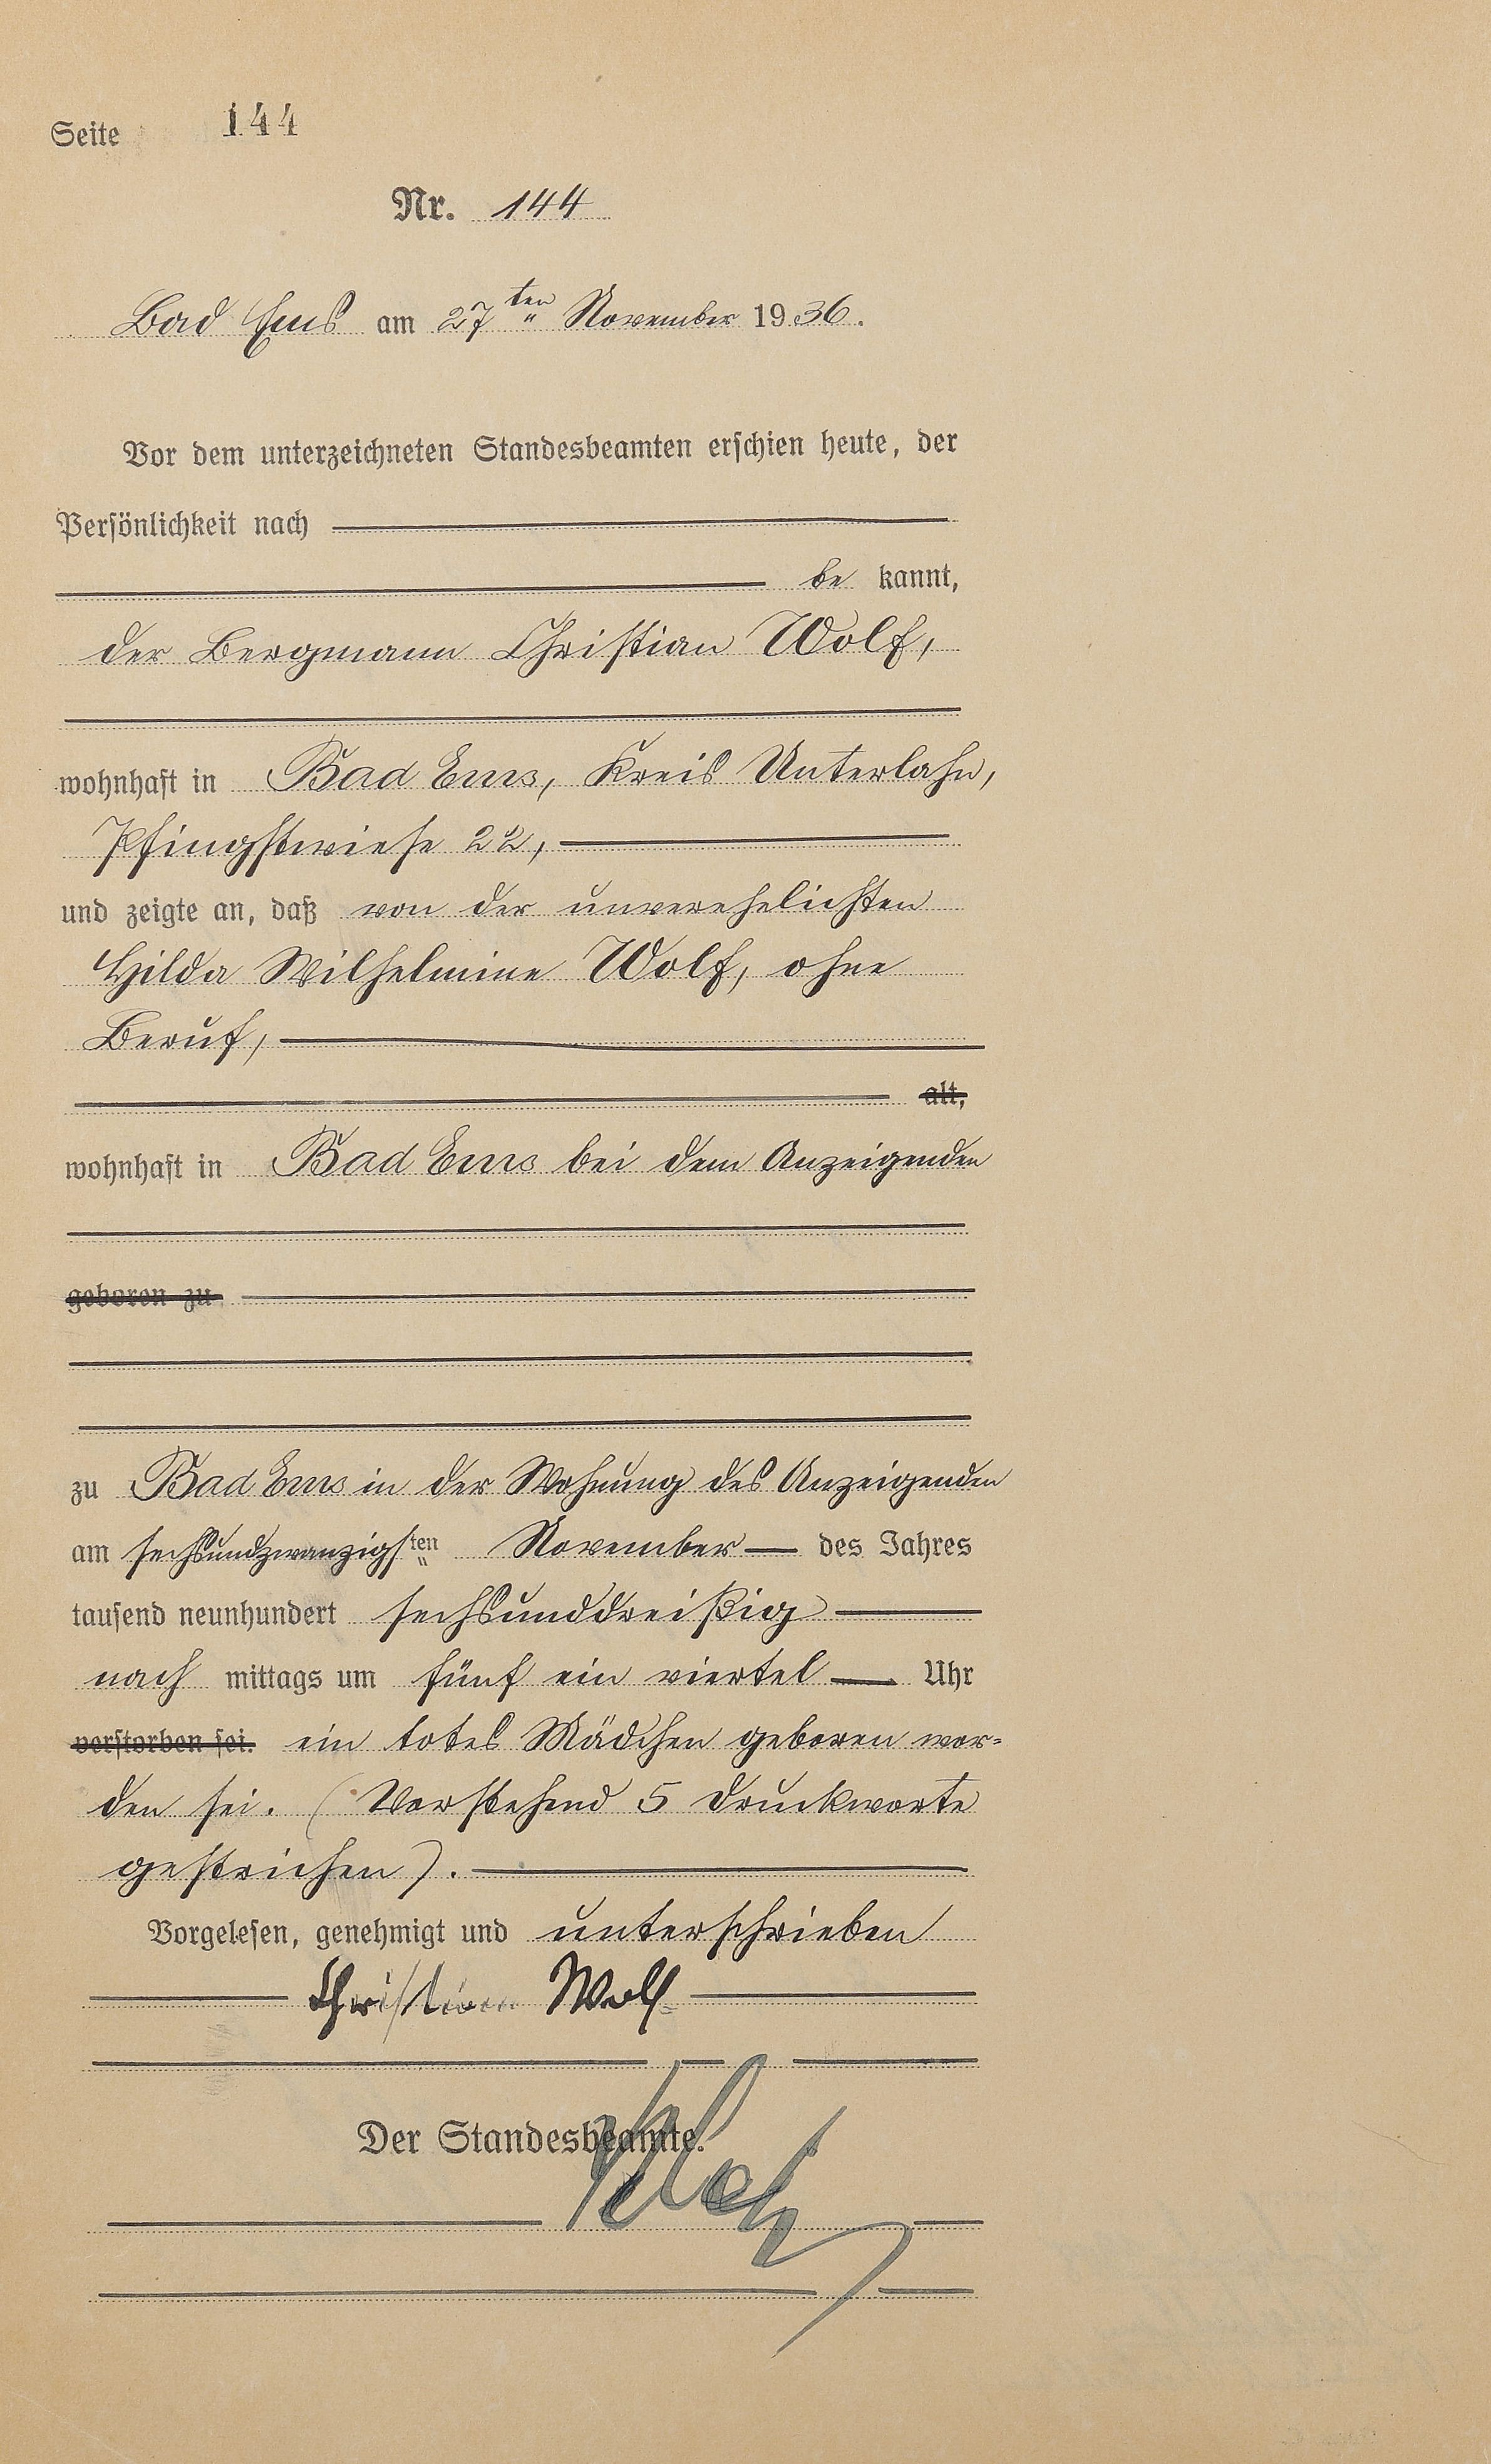 Seite 144
Nr. 144
Bad Ems am 27ten November 1936.
Vor dem unterzeichneten Standesbeamten erschien heute, der
Persönlichkeit nach
be kannt,
der Bergmann Christian Wolf,
wohnhaft in Bad Ems, Kreis Unterlahn,
Pfingstwiese 22,
und zeigte an, daß von der unverehelichten
Hilda Wilhelmine Wolf, ohne
Beruf,
alt,
wohnhaft in Bad Ems bei dem Anzeigenden
geboren zu
zu Bad Ems in der Wohnung des Anzeigenden
am sechsundzwanzigsten November des Jahres
tausend neunhundert sechsunddreißig
nach mittags um fünf ein viertel Uhr
verstorben sei. ein totes Mädchen geboren wor-
den sei. (Vorstehend 5 Druckworte
gestrichen).
Vorgelesen, genehmigt und unterschrieben
Christian Wolf
Der Standesbeamte.